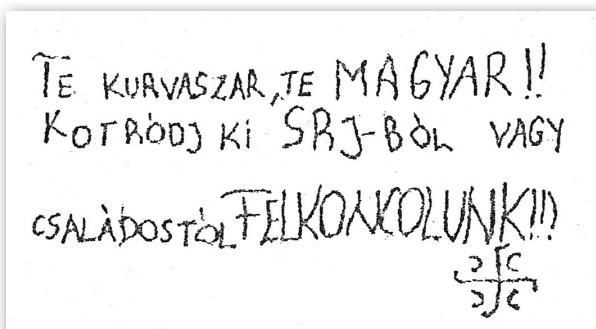 TE KURVASZAR,TE MAGYAR!!
KOTRÓDJ KI SRJ-BÓL VAGY
CSALÁDOSTÓL FELKONCOLUNK!!!